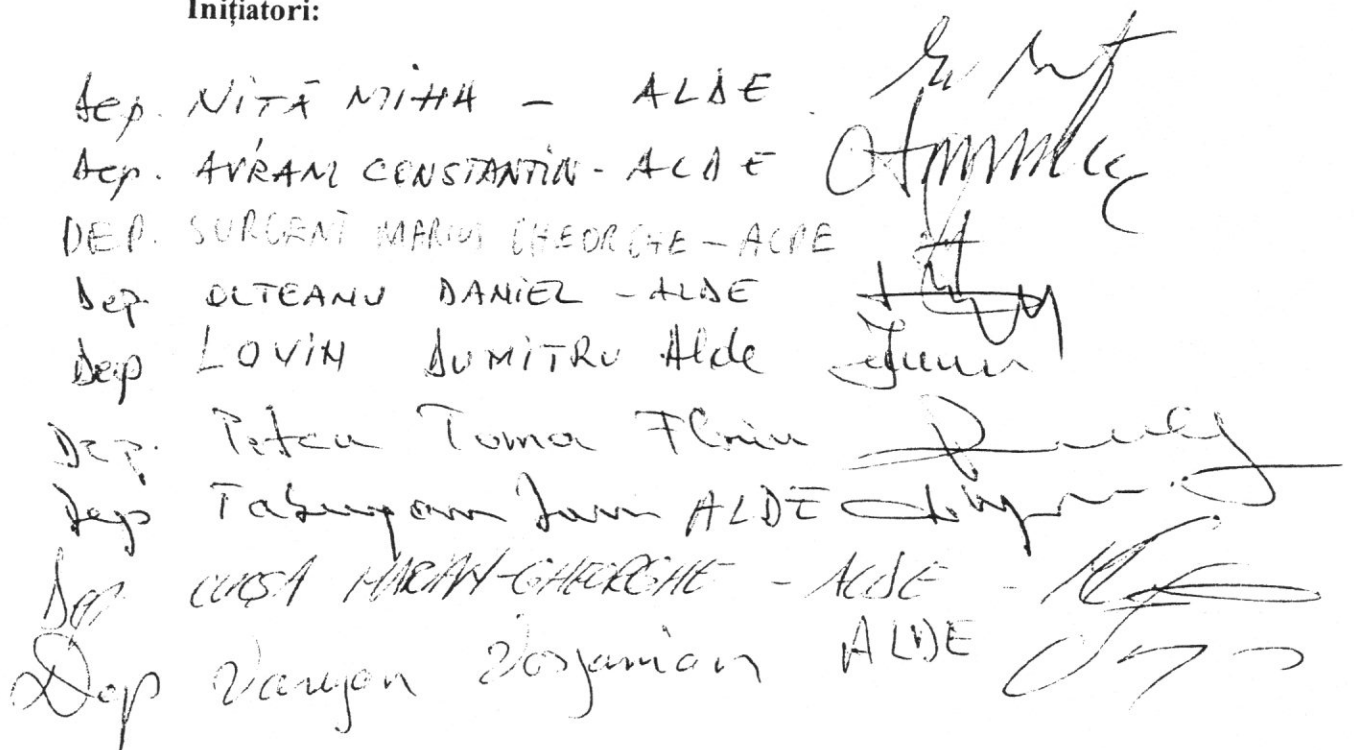 Inițiatori:
Dep. NIȚĂ MIHA - ALDE
Dep. AVRAM CONSTANTIN - ALDE
DEP. SURGENT MARIUS GHEORGHE - ALDE
Dep. OLTEANU DANIEL - ALDE
Dep LOVIN DUMITRU Alde
Dep. Petcu Toma Florin
Dep ALDE
Dep CUCȘA MARIAN-GHEORGHE - ALDE -
Dep Varujan Vosganian ALDE